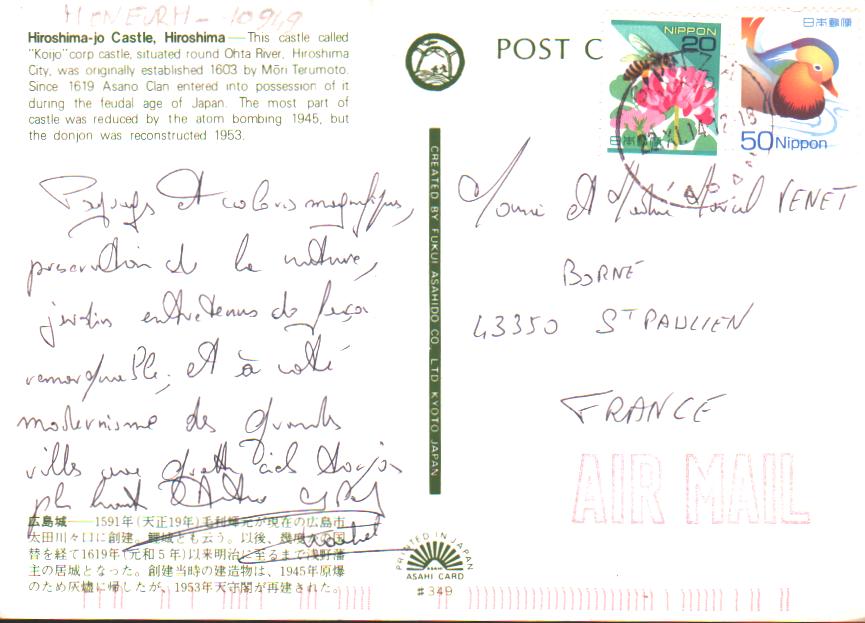 Hiroshima-jo Castle, Hiroshima — This castle called
"Koijo" corp castle, situated round Ohta River, Hiroshima
City, was originally established 1603 by Mōri Terumoto.
Since 1619 Asano Clan entered into possession of it
during the feudal age of Japan. The most part of
castle was reduced by the atom bombing 1945, but
the donjon was reconstructed 1953.
POST C
NIPPON
20
日本郵便
日本郵便
50 Nippon
CREATED BY FUKUI ASAHIDO CO., LTD KYOTO JAPAN
Paysages et coloris magnifiques,
préservation de la nature,
jardins entretenus de façon
remarquable, et à côté
modernisme des grandes
villes avec gratte ciels toujours
plus haut
VENET
BORNE
43350 ST PAULIEN
FRANCE
AIR MAIL
広島城——1591年(天正19年)毛利輝元が現在の広島市
太田川々口に創建。鯉城とも云う。以後、幾度かの国
替を経て1619年(元和5年)以来明治に至るまで浅野藩
主の居城となった。創建当時の建造物は、1945年原爆
のため灰燼に帰したが、1953年天守閣が再建された。
PRINTED IN JAPAN
ASAHI CARD
#349